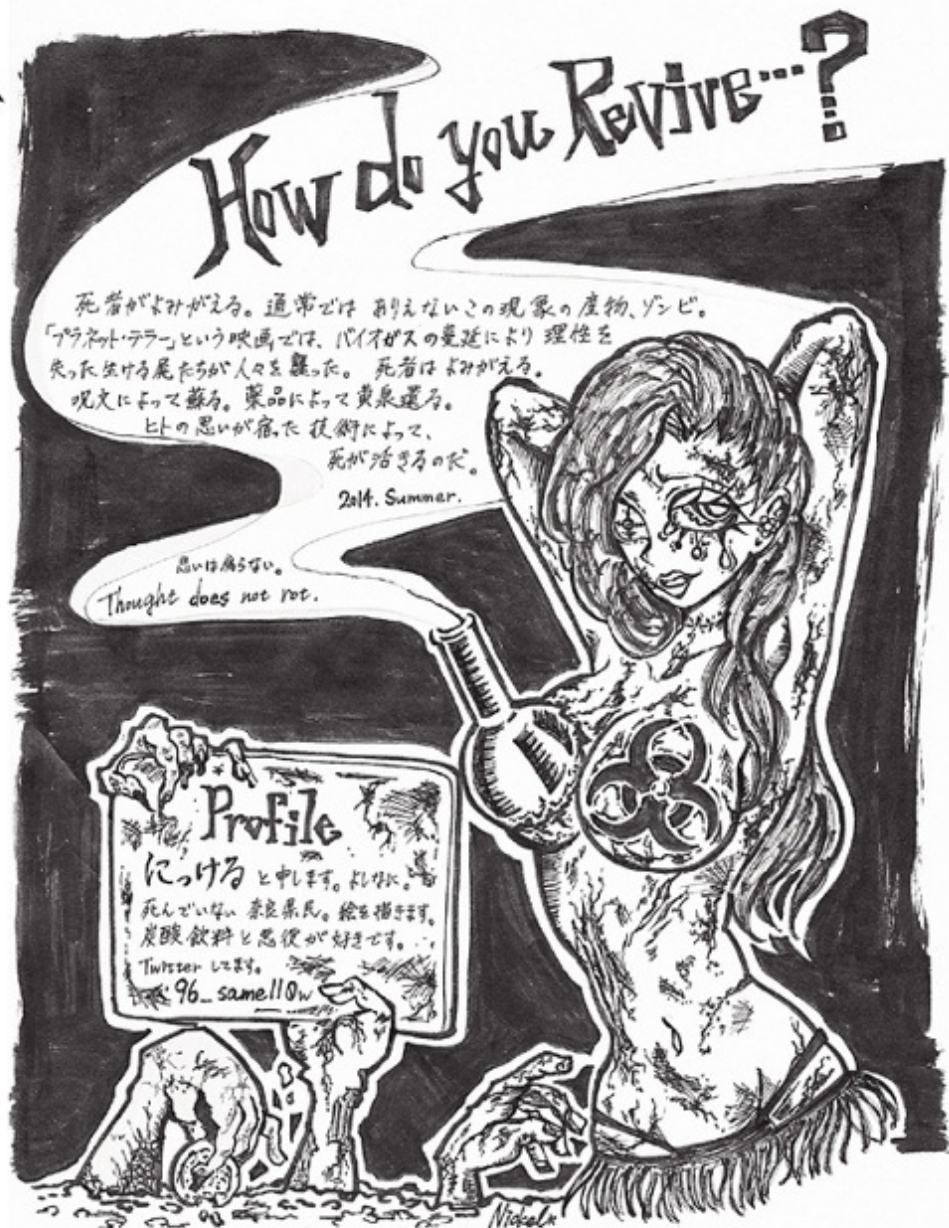 How do you Revive…?
死者がよみがえる。通常では ありえないこの現象の産物、ゾンビ。
「プラネット・テラー」という映画では、バイオガスの蔓延により 理性を
失った生ける屍たちが人々を襲った。 死者は よみがえる。
呪文によって蘇る。薬品によって黄泉還る。
ヒトの思いが宿った 技術によって、
死が活きるのだ。
2014. Summer.
思いは腐らない。
Thought does not rot.
Profile
にっける と申します。よしなに。
死んでいない 奈良県民。絵を描きます。
炭酸飲料と悪役が好きです。
Twitter してます。
96_samell0w
Nickel